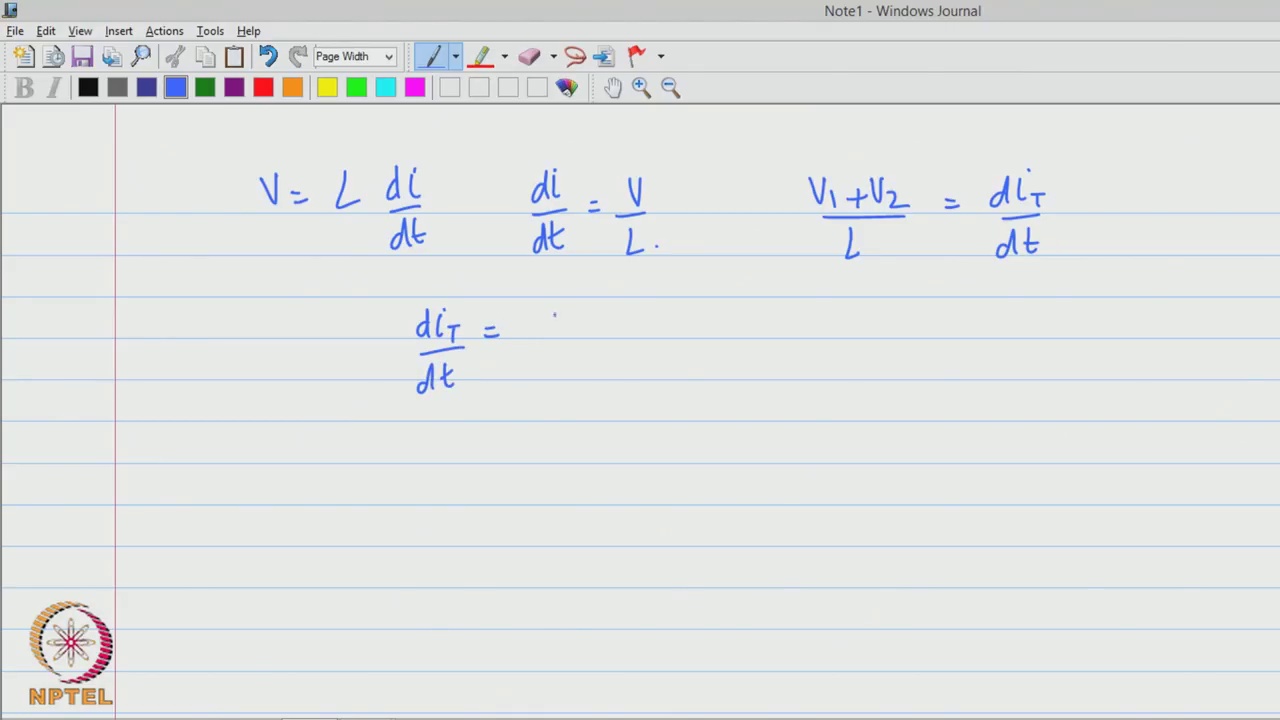 Note1 - Windows Journal
File Edit View Insert Actions Tools Help
Page Width
B I
V = L di/dt di/dt = V/L. V1+V2/L = diT/dt
diT/dt =
NPTEL